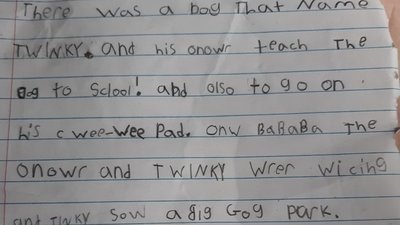 There was a bog That Name
TWINKY. and his onowr teach The
Dog to Sclool! and olso to go on
his c wee-wee Pad. onw BaBaBa The
onowr and TWINKY Wrer wicing
and TWNKY sow a gig Gog park.